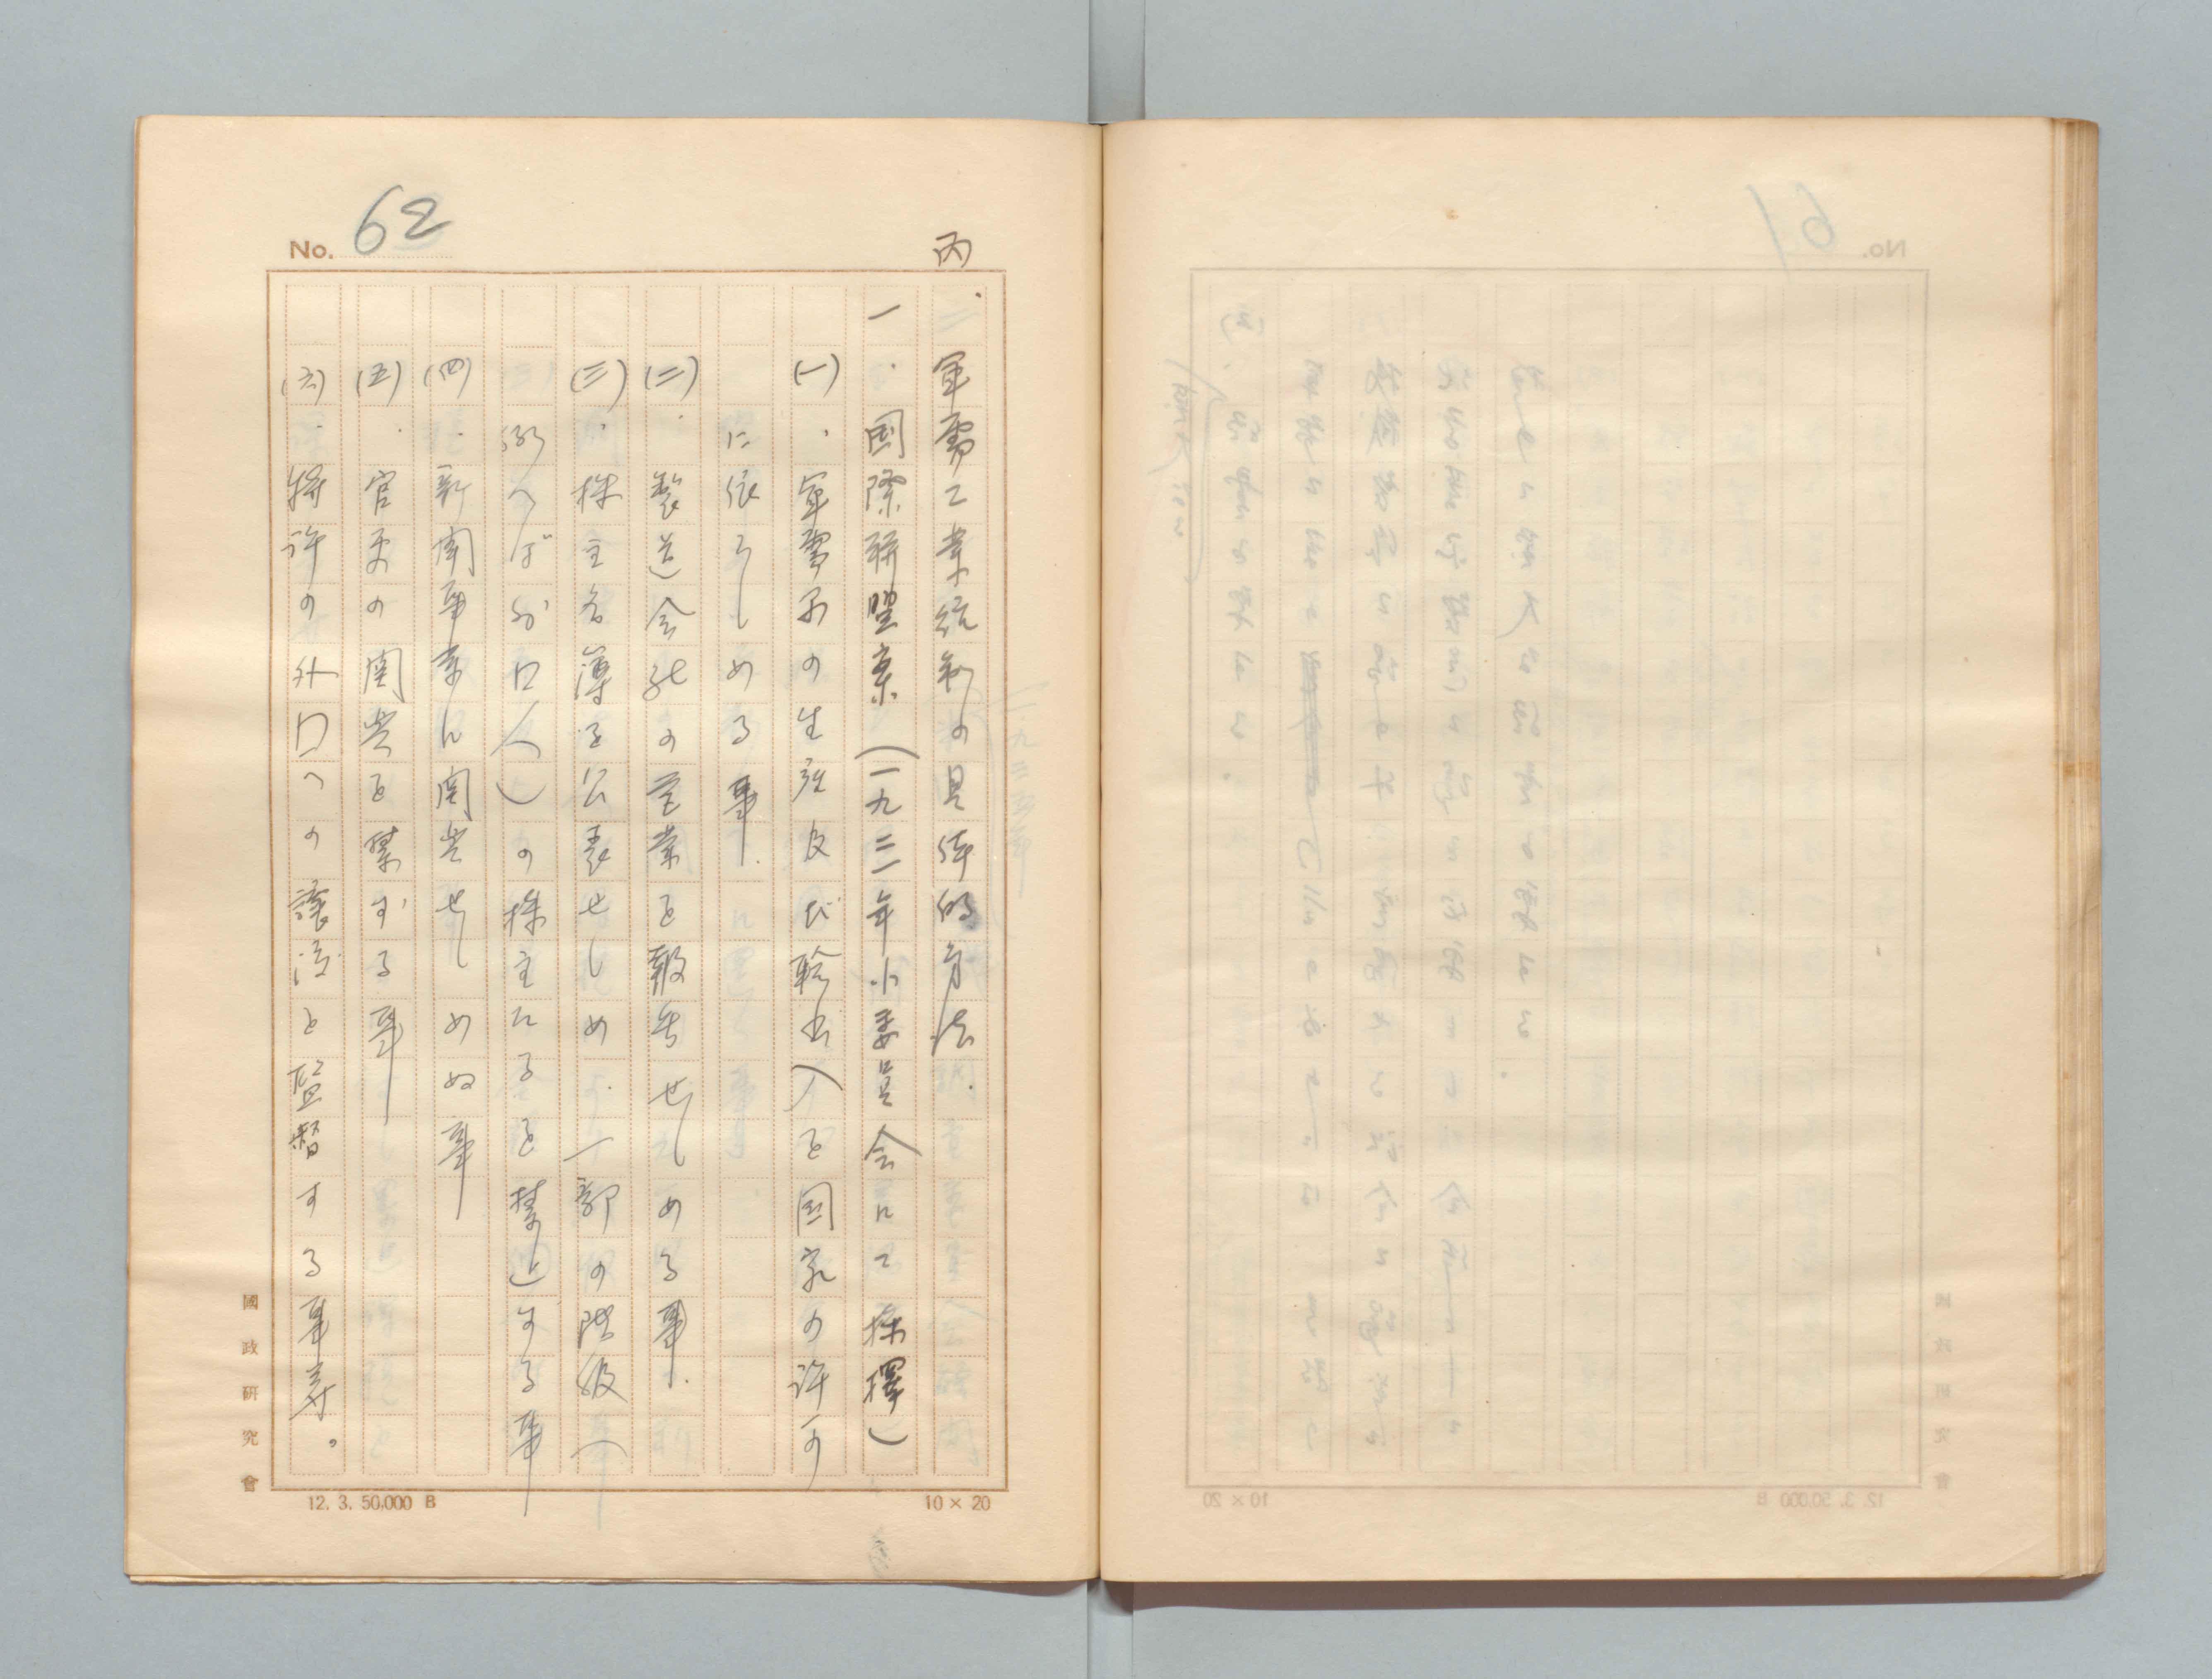 No. 62
丙.軍需工業統制の具体的方法.
一.国際聯盟案(一九三一年小委員会にて採擇)
(一).軍需品の生産及び輸出入を国家の許可
に依らしめる事.
(二).製造会社の営業を報告せしめる事.
(三).株主名簿を公表せしめ.一部の階級(
例へば外囗人)の株主たるを禁止する事
(四).新聞事業に関与せしめぬ事
(五).官吏の関与を禁ずる事
(六).特許の外囗への譲渡を監督する事等。
國政研究會
12. 3. 50,000 B
10×20